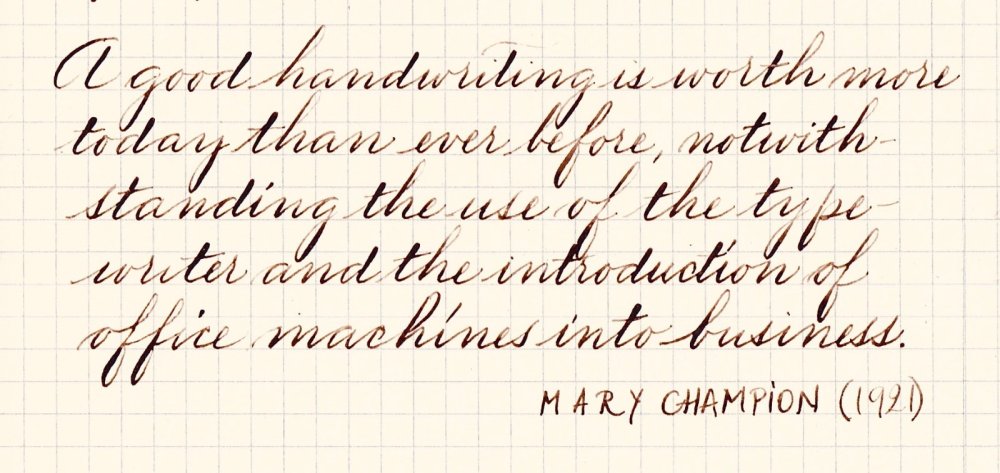 A good handwriting is worth more
today than ever before, notwith-
standing the use of the type-
writer and the introduction of
office machines into business.
MARY CHAMPION (1921)